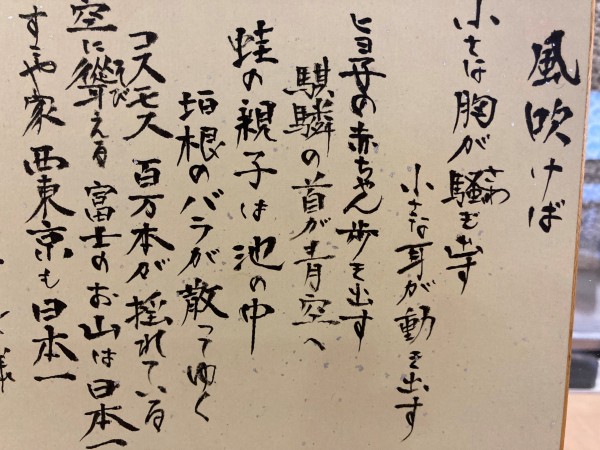 風吹けば
小さな胸が騒ぎ出す
さわ
小さな耳が動き出す
ヒヨ子の赤ちゃん歩き出す
騏驎の首が青空へ
蛙の親子は池の中
垣根のバラが散ってゆく
コスモス 百万本が揺れている
空に聳える 富士のお山は日本一
そび
家 西東京も日本一